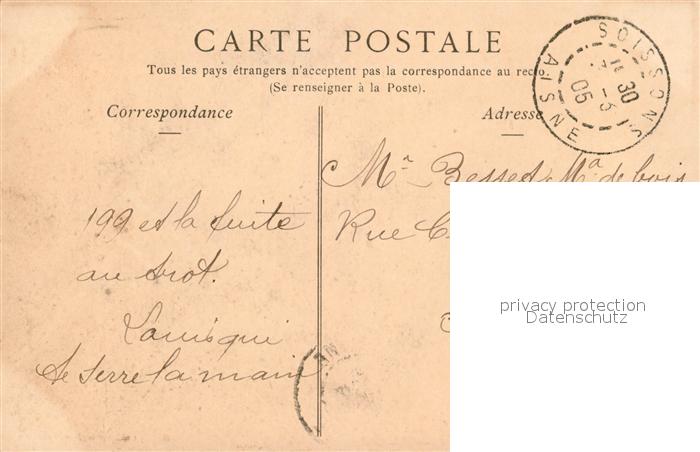 CARTE POSTALE
Tous les pays étrangers n'acceptent pas la correspondance au recto.
(Se renseigner à la Poste).
Correspondance
Adresse
SOISSONS
AISNE
30
-3
05
Mr Besset Md de bois
Rue C
199 et la fuite
au trot.
Louis qui
te serre la main
NE
privacy protection
Datenschutz